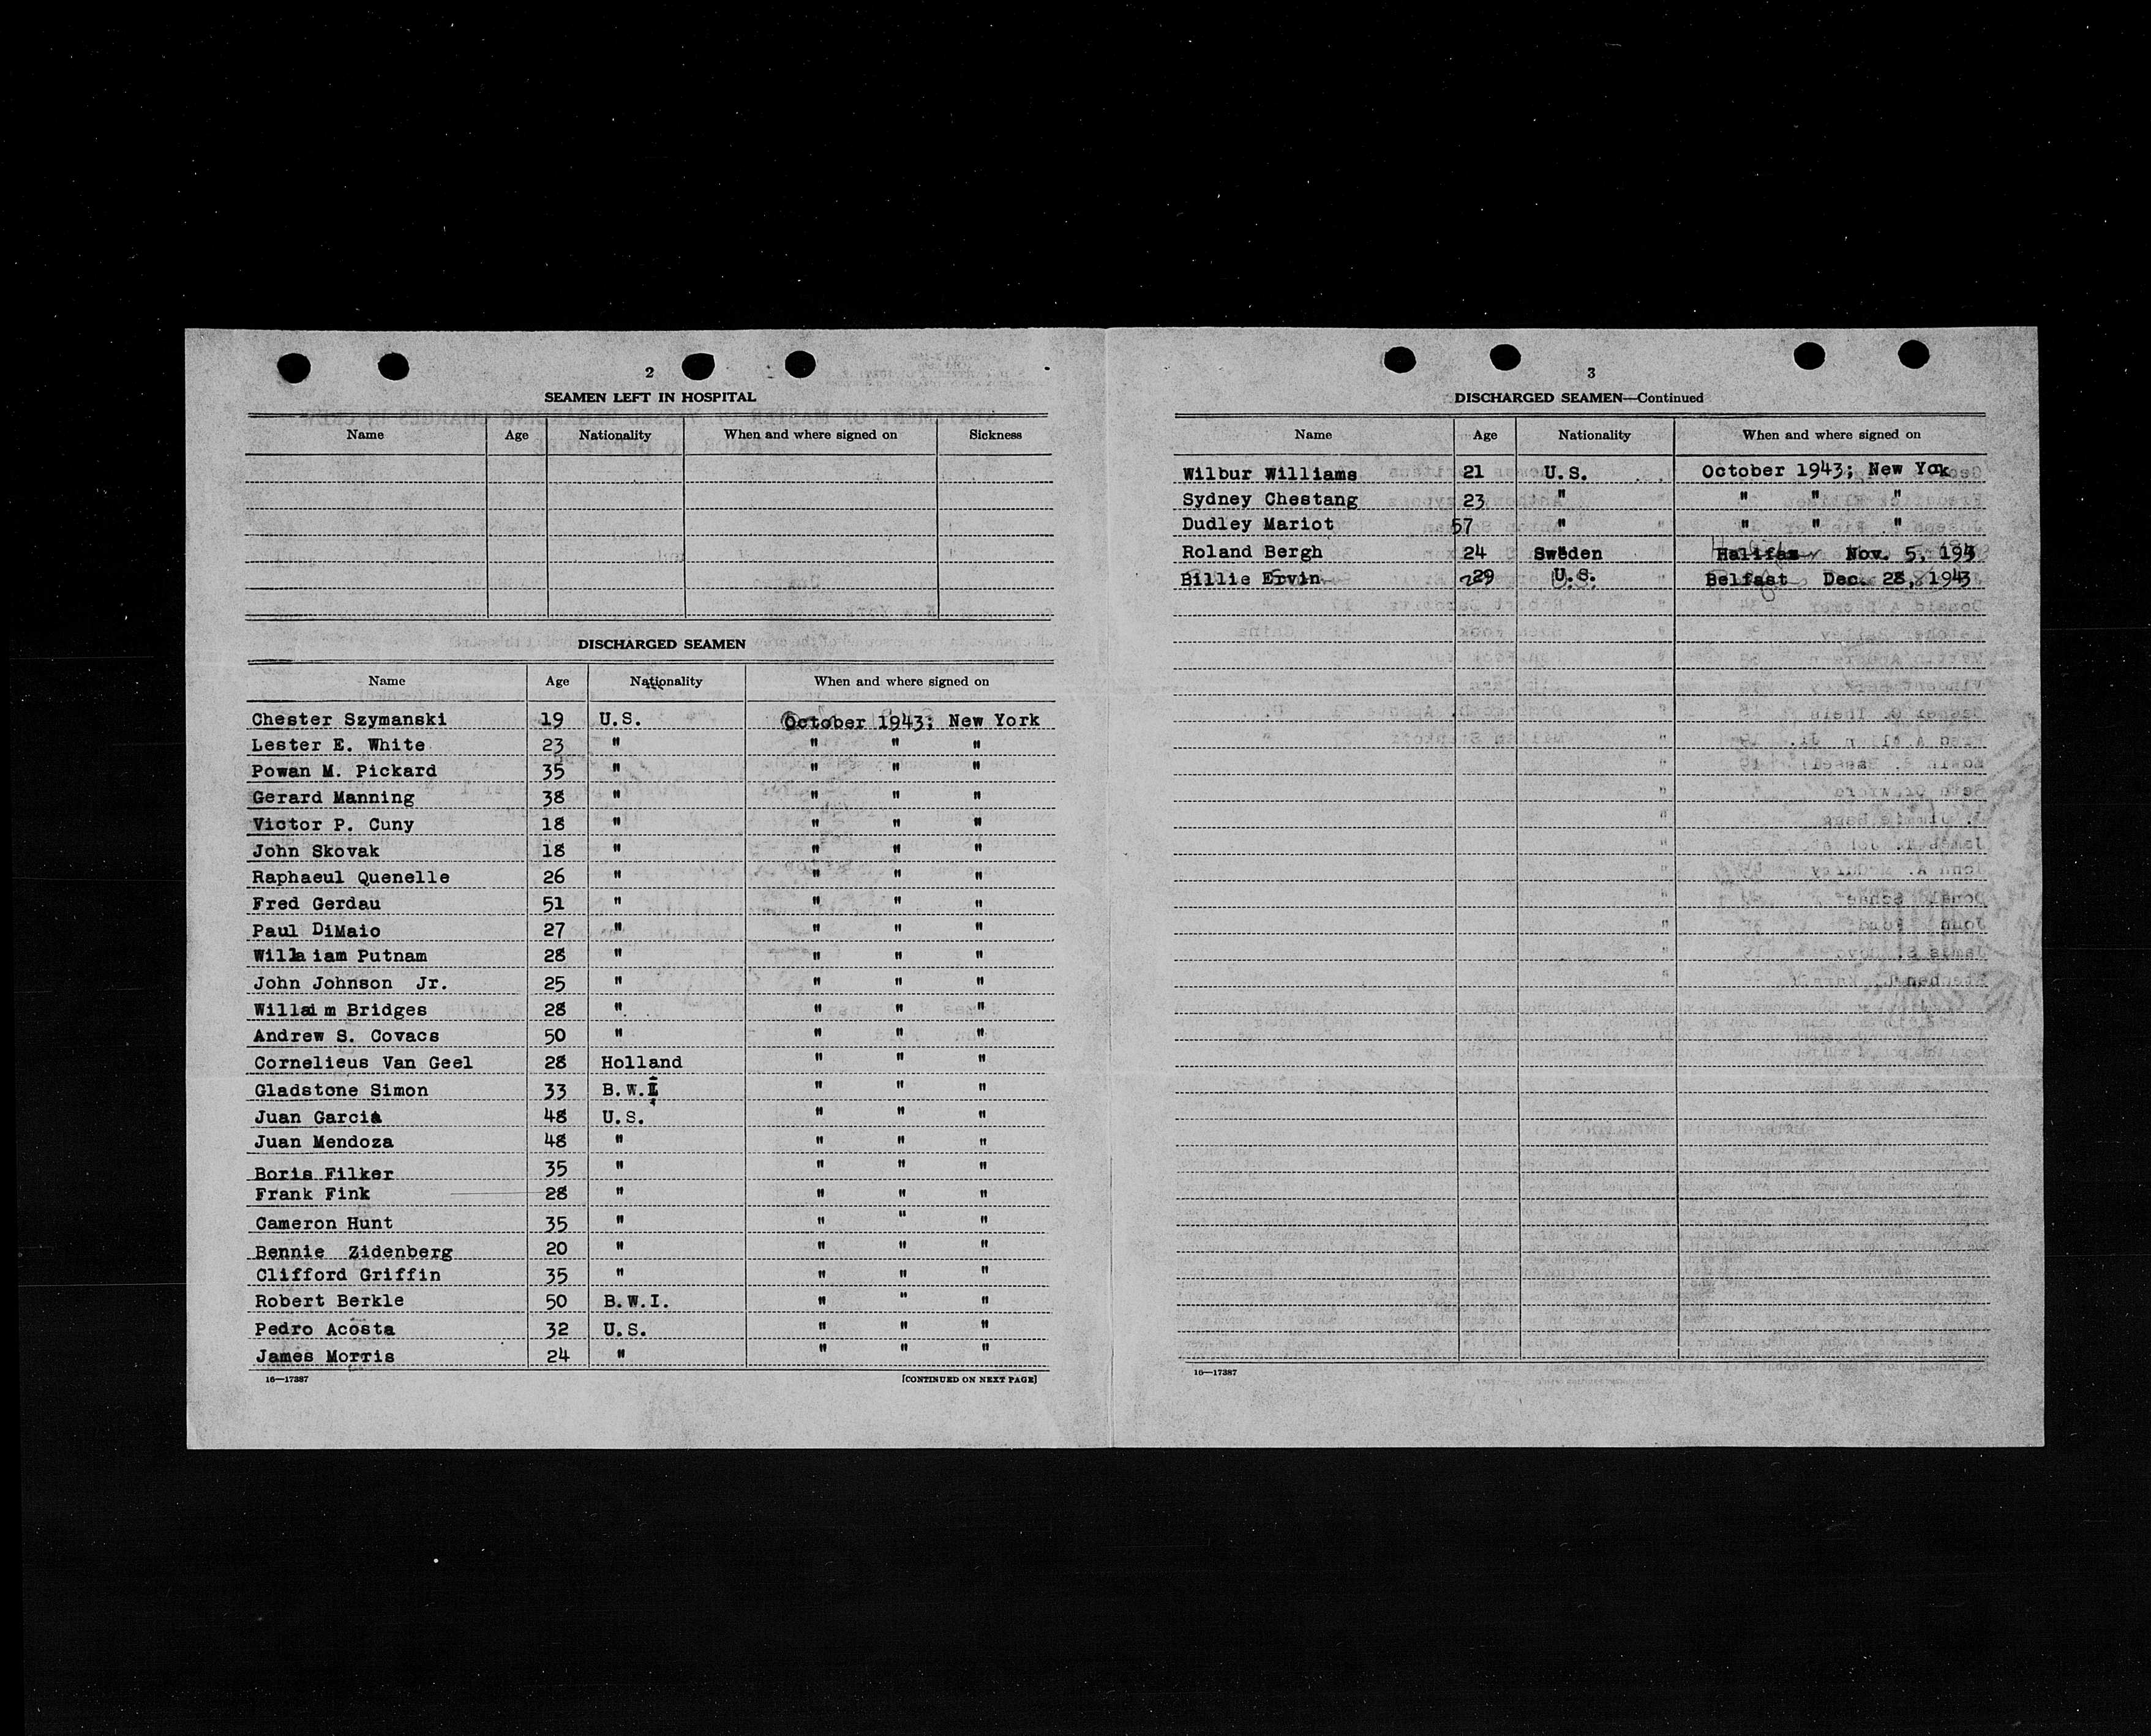 2
SEAMEN LEFT IN HOSPITAL
Name Age Nationality When and where signed on Sickness
DISCHARGED SEAMEN
Name Age Nationality When and where signed on
Chester Szymanski 19 U.S. October 1943; New York
Lester E. White 23 " " " "
Powan M. Pickard 35 " " " "
Gerard Manning 38 " " " "
Victor P. Cuny 18 " " " "
John Skovak 18 " " " "
Raphaeul Quenelle 26 " " " "
Fred Gerdau 51 " " " "
Paul DiMaio 27 " " " "
Willa iam Putnam 28 " " " "
John Johnson Jr. 25 " " " "
Willai m Bridges 28 " " " "
Andrew S. Covacs 50 " " " "
Cornelieus Van Geel 28 Holland " " "
Gladstone Simon 33 B.W.I " " "
Juan Garcia 48 U.S. " " "
Juan Mendoza 48 " " " "
Boris Filker 35 " " " "
Frank Fink 28 " " " "
Cameron Hunt 35 " " " "
Bennie Zidenberg 20 " " " "
Clifford Griffin 35 " " " "
Robert Berkle 50 B.W.I. " " "
Pedro Acosta 32 U.S. " " "
James Morris 24 " " " "
16—17387 [CONTINUED ON NEXT PAGE]
3
DISCHARGED SEAMEN—Continued
Name Age Nationality When and where signed on
Wilbur Williams 21 U.S. October 1943; New Yok
Sydney Chestang 23 " " " "
Dudley Mariot 57 " " " "
Roland Bergh 24 Sweden Halifax Nov. 5, 194
Billie Ervin 29 U.S. Belfast Dec. 28, 1943
16—17387